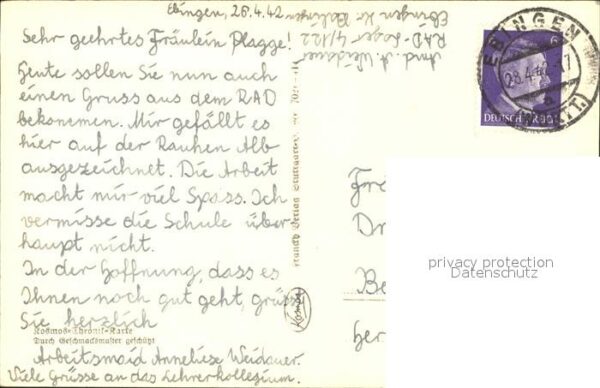 Ebingen, 26.4.42
Sehr geehrtes Fräulein Plagge!
Heute sollen Sie nun auch
einen Gruss aus dem RAD
bekommen. Mir gefällt es
hier auf der Rauhen Alb
ausgezeichnet. Die Arbeit
macht mir viel Spass. Ich
vermisse die Schule über-
haupt nicht.
In der Hoffnung, dass es
Ihnen noch gut geht, grüsse
Sie herzlich
Kosmos-Chronik-Karte
Durch Geschmacksmuster geschützt
Arbeitsmaid Anneliese Weidauer.
Viele Grüsse an das Lehrerkollegium.
A. Weidauer
RAD-Lager 4/122
Ebingen Kr. Balingen
Franckh Verlag Stuttgart
Kosmos
EBINGEN
28.4.42-17
a
(WÜRTT.)
6
DEUTSCHES REICH
Frä
Be
her
privacy protection
Datenschutz